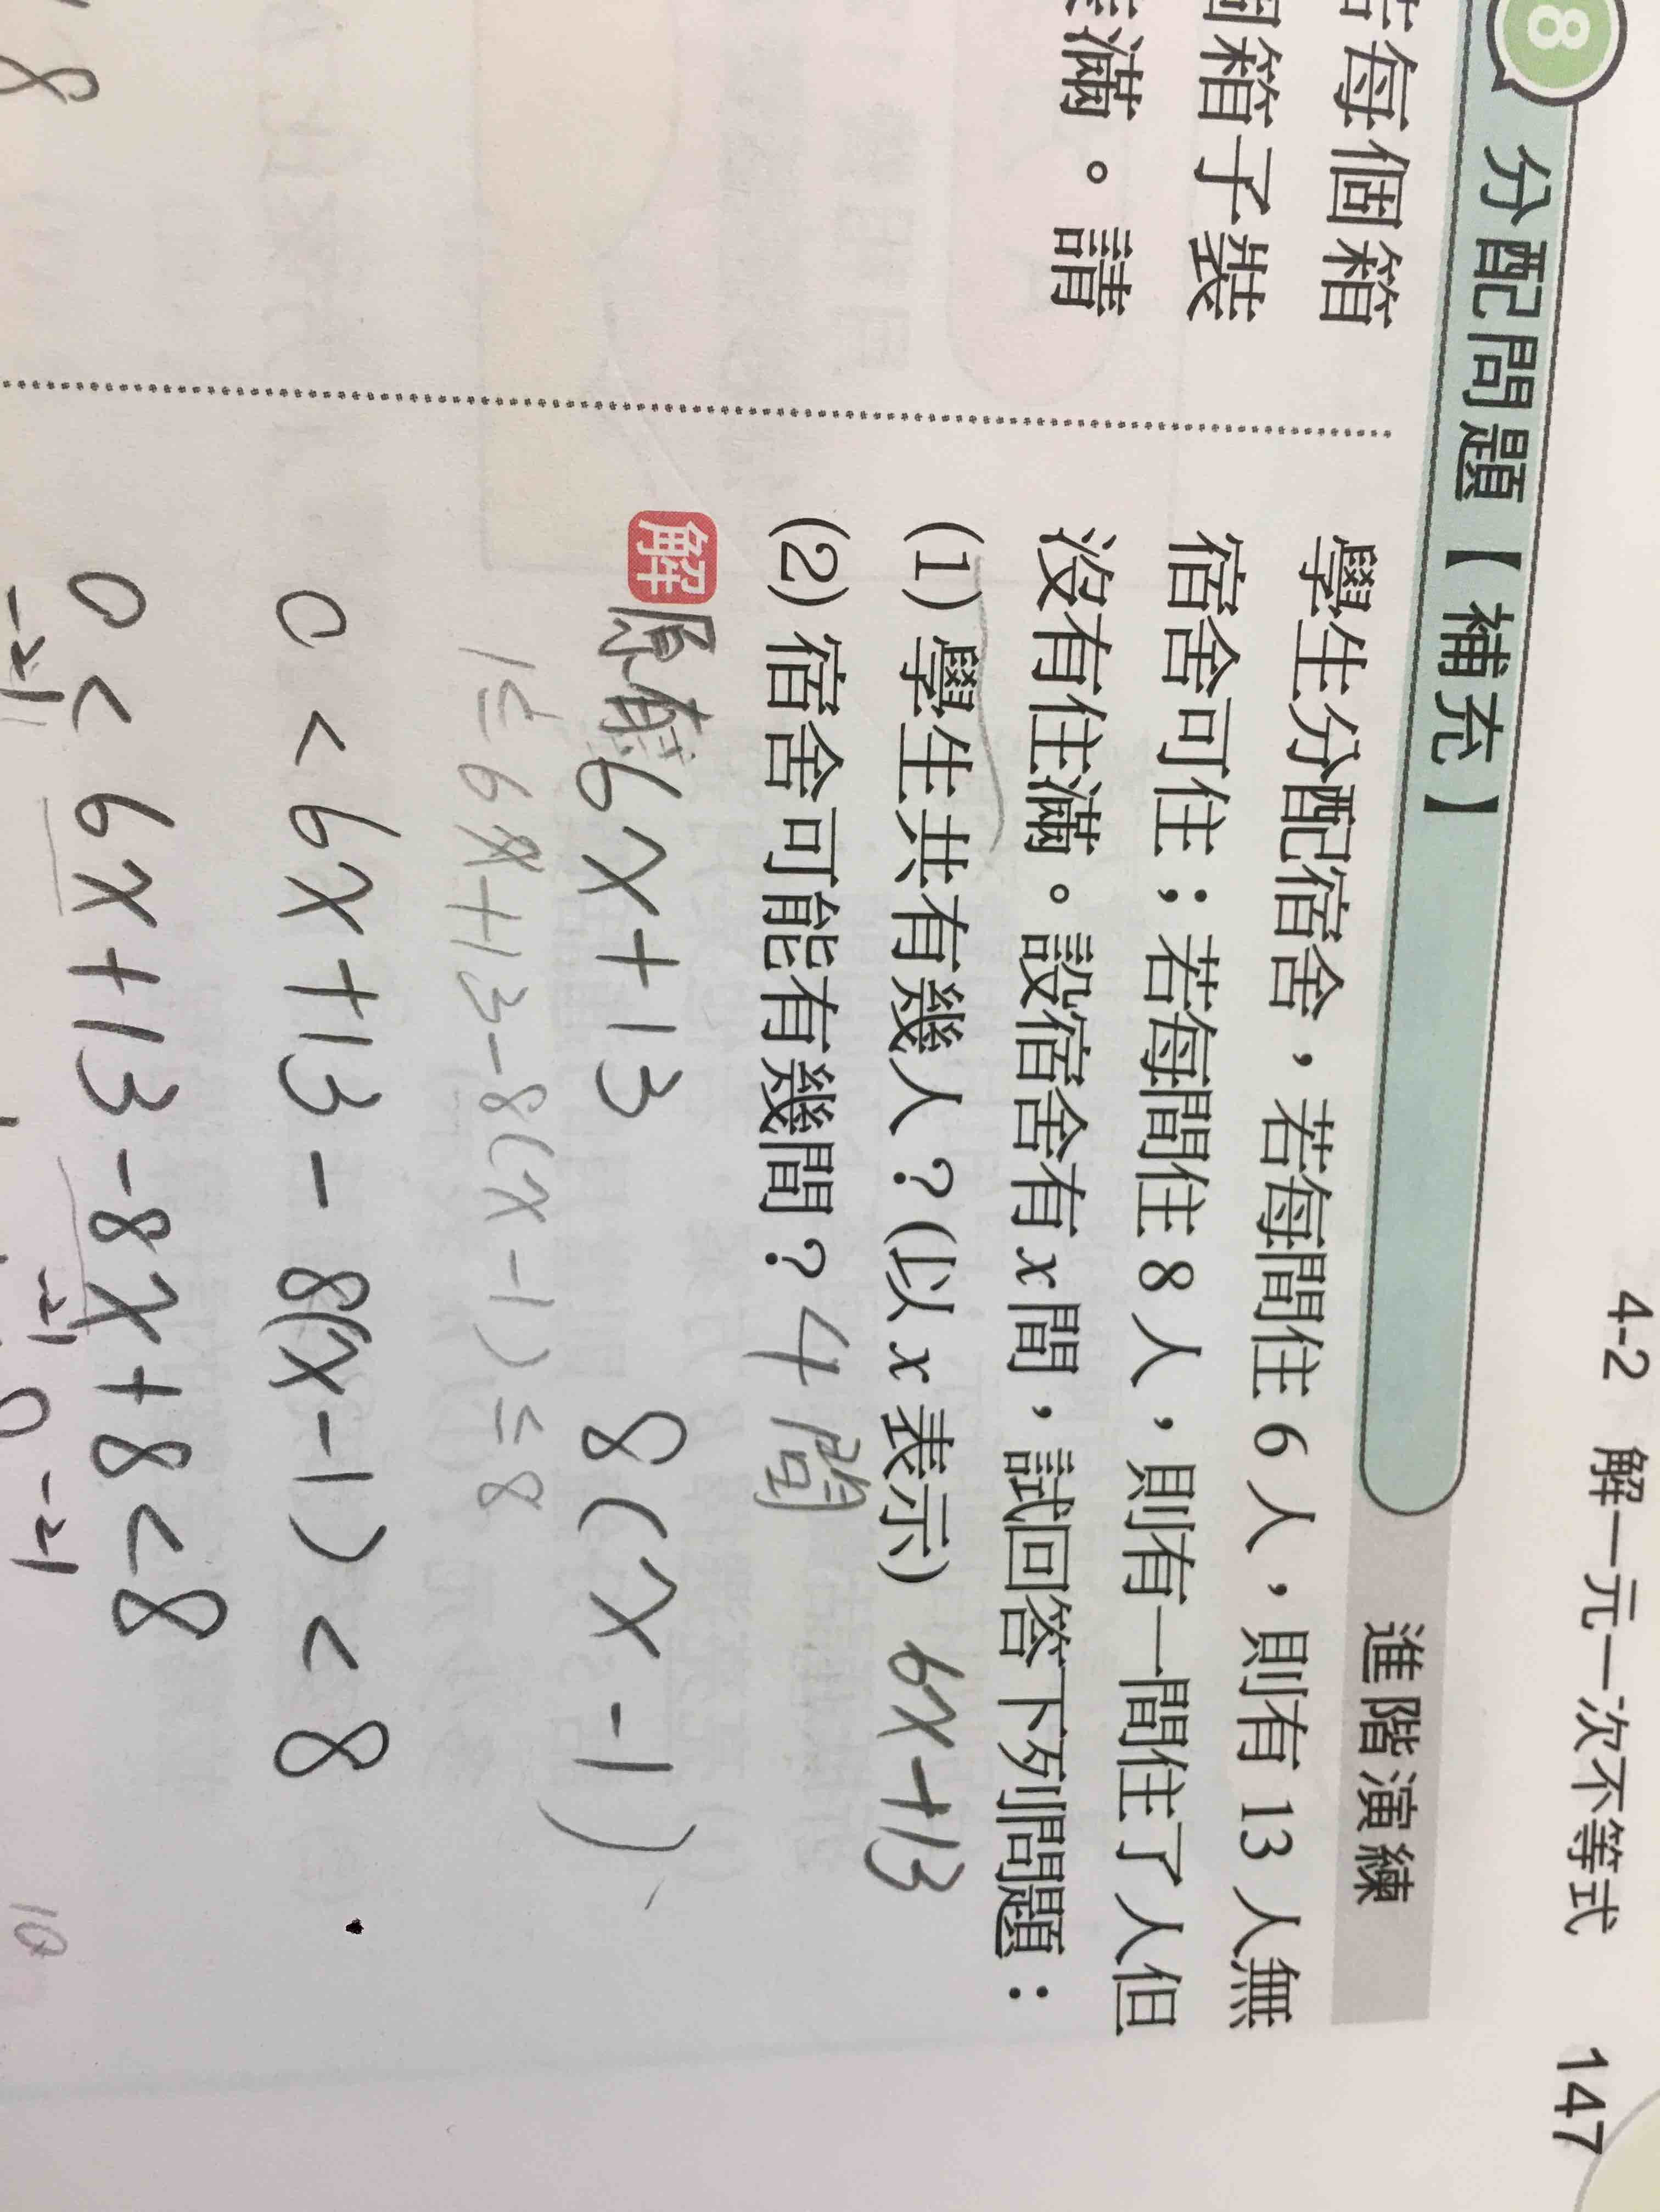 4-2 解一元一次不等式 147
8 分配問題【補充】
進階演練
每個箱
箱子裝
滿。請
學生分配宿舍，若每間住 6 人，則有 13 人無
宿舍可住；若每間住 8 人，則有一間住了人但
沒有住滿。設宿舍有 x 間，試回答下列問題：
(1) 學生共有幾人？(以 x 表示) 6x+13
(2) 宿舍可能有幾間？4 間
解 原有 6x+13 8(x-1)
1≤6x+13-8(x-1)≤8
0<6x+13-8(x-1)<8
0<6x+13-8x+8<8
8
10